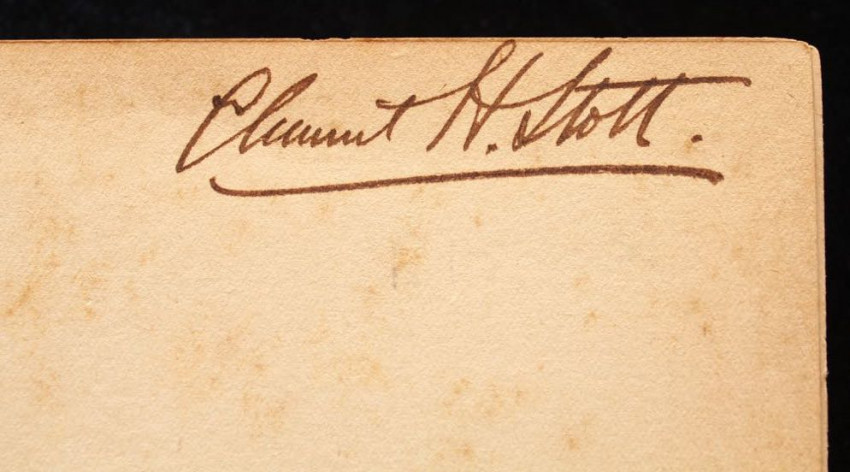 Clement H. Stott.